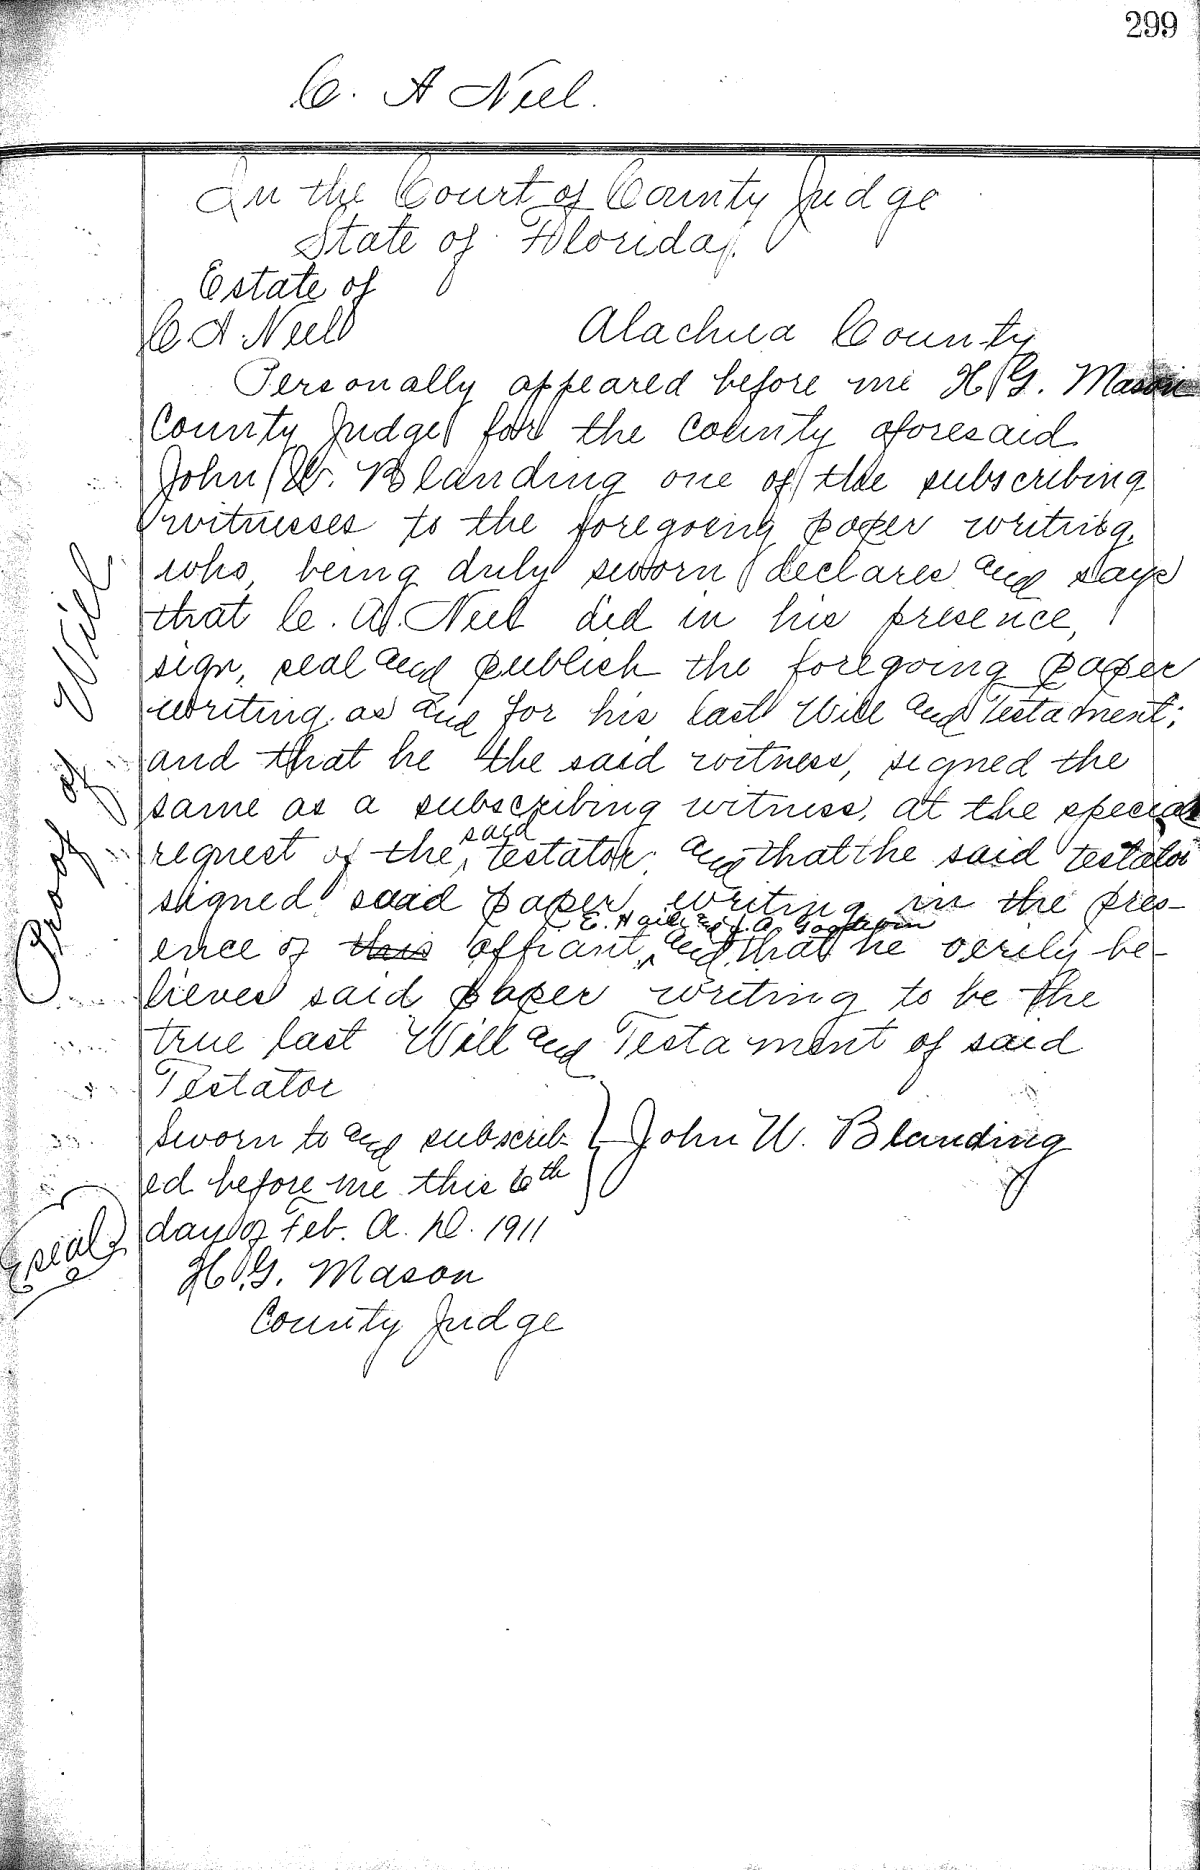 299
C. A Neel.
In the Court of County Judge
State of Florida,
Estate of
C A Neel
Alachua County
Personally appeared before me H. G. Mason
County Judge for the county aforesaid
John W. Blanding one of the subscribing
witnesses to the foregoing paper writing,
who, being duly sworn declares and says
that C. A. Neel did in his presence,
sign, seal and publish the foregoing paper
writing, as and for his last Will and Testament;
and that he the said witness, signed the
same as a subscribing witness, at the special
request of the said testator, and that the said testator
signed said paper writing in the pres-
ence of this affiant, E. and J. A. Goodwin and that he verily be-
lieves said paper writing to be the
true last Will and Testament of said
Testator
Sworn to and subscrib-
ed before me this 6th
day of Feb. A. D. 1911
John W. Blanding
H. G. Mason
County Judge
Proof of Will
seal